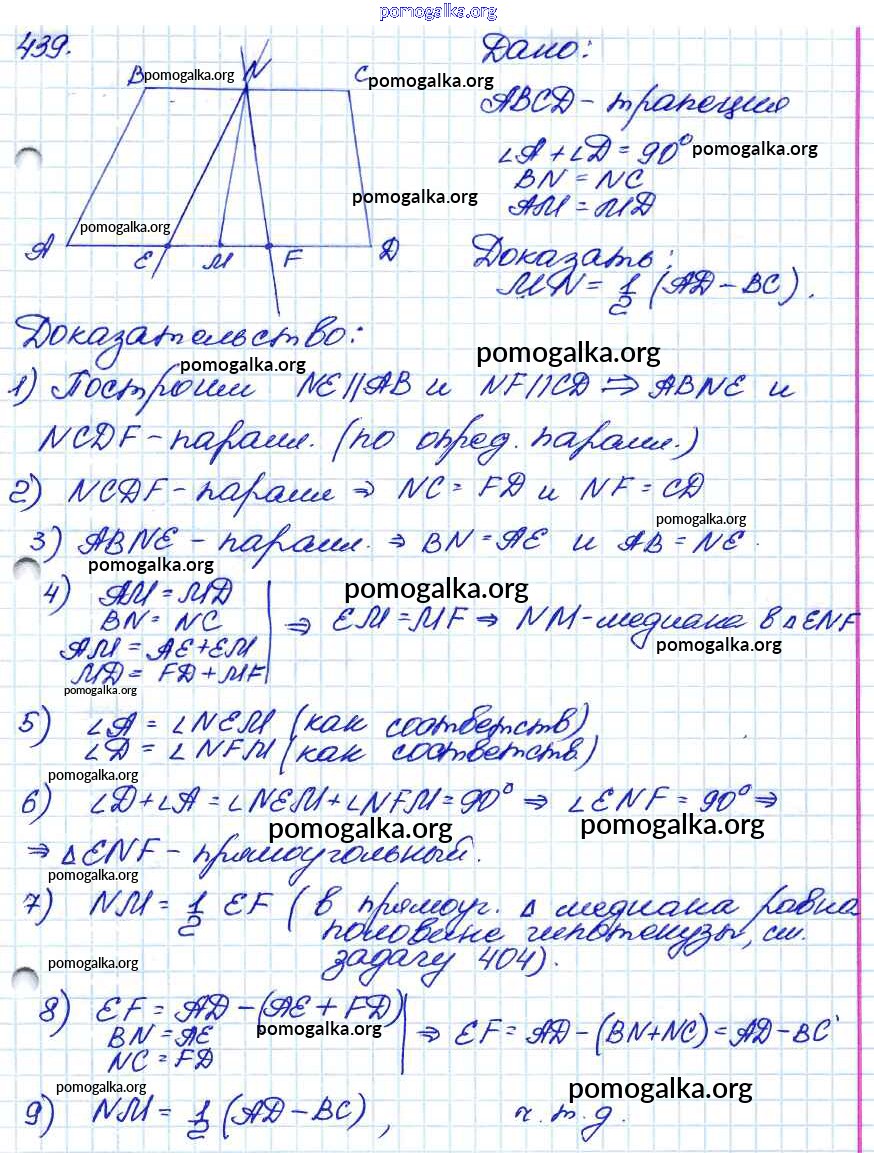 pomogalka.org
439.
Дано:
B pomogalka.org N C pomogalka.org
ABCD - трапеция
∠A + ∠D = 90° pomogalka.org
BN = NC
pomogalka.org AM = MD
pomogalka.org
A E M F D
Доказать:
MN = 1/2 (AD - BC).
Доказательство:
pomogalka.org pomogalka.org
1) Построим NE//AB и NF//CD ⇒ ABNE и
NCDF - паралл. (по опред. паралл.)
2) NCDF - паралл ⇒ NC = FD и NF = CD
pomogalka.org
3) ABNE - паралл. ⇒ BN = AE и AB = NE.
pomogalka.org pomogalka.org
4) AM = MD
BN = NC
AM = AE + EM
MD = FD + MF
⇒ EM = MF ⇒ NM - медиана в △ENF
pomogalka.org
pomogalka.org
5) ∠A = ∠NEM (как соответств)
∠D = ∠NFM (как соответств)
pomogalka.org
6) ∠D + ∠A = ∠NEM + ∠NFM = 90° ⇒ ∠ENF = 90° ⇒
pomogalka.org pomogalka.org
⇒ △ENF - прямоугольный.
pomogalka.org
7) NM = 1/2 EF (в прямоуг. △ медиана равна
половине гипотенузы, см.
задачу 404).
pomogalka.org
8) EF = AD - (AE + FD)
BN = AE pomogalka.org
NC = FD
⇒ EF = AD - (BN + NC) = AD - BC
pomogalka.org pomogalka.org
9) NM = 1/2 (AD - BC), ч.т.д.